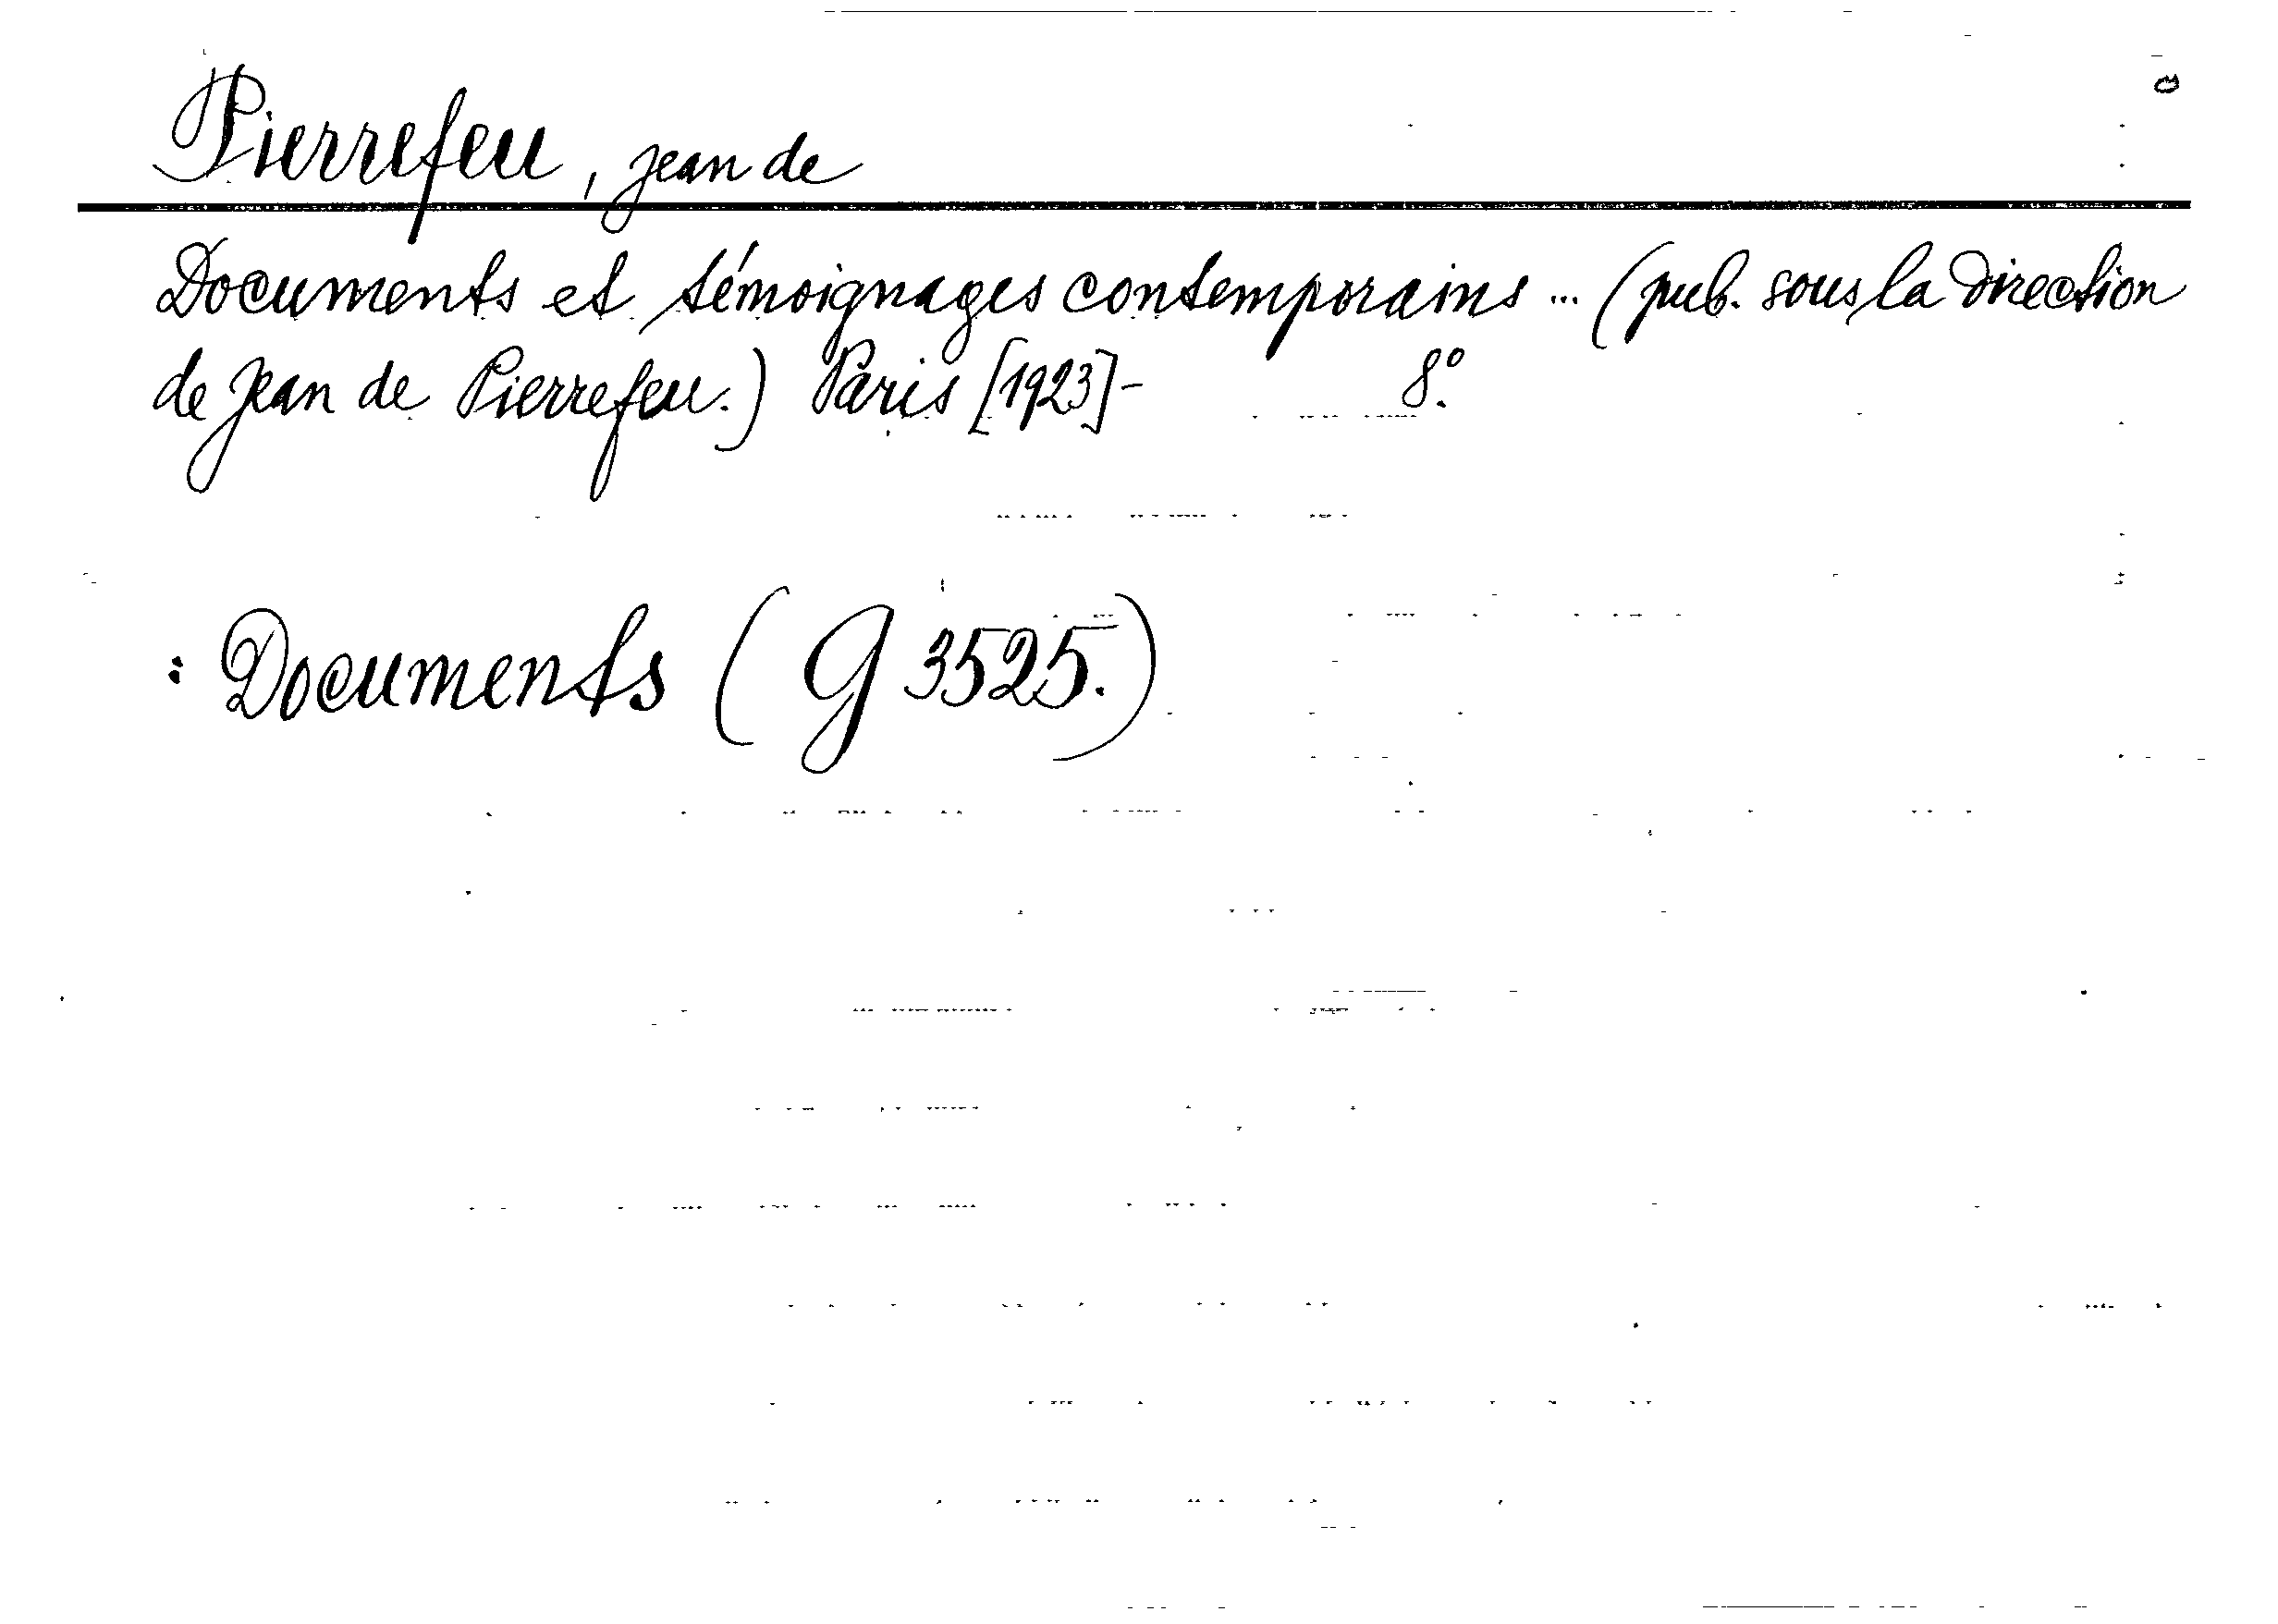 Pierrefeu, Jean de
Documents et témoignages contemporains ... (pub. sous la direction
de Jean de Pierrefeu.) Paris [1923]- 8º.
: Documents (G 3525.)